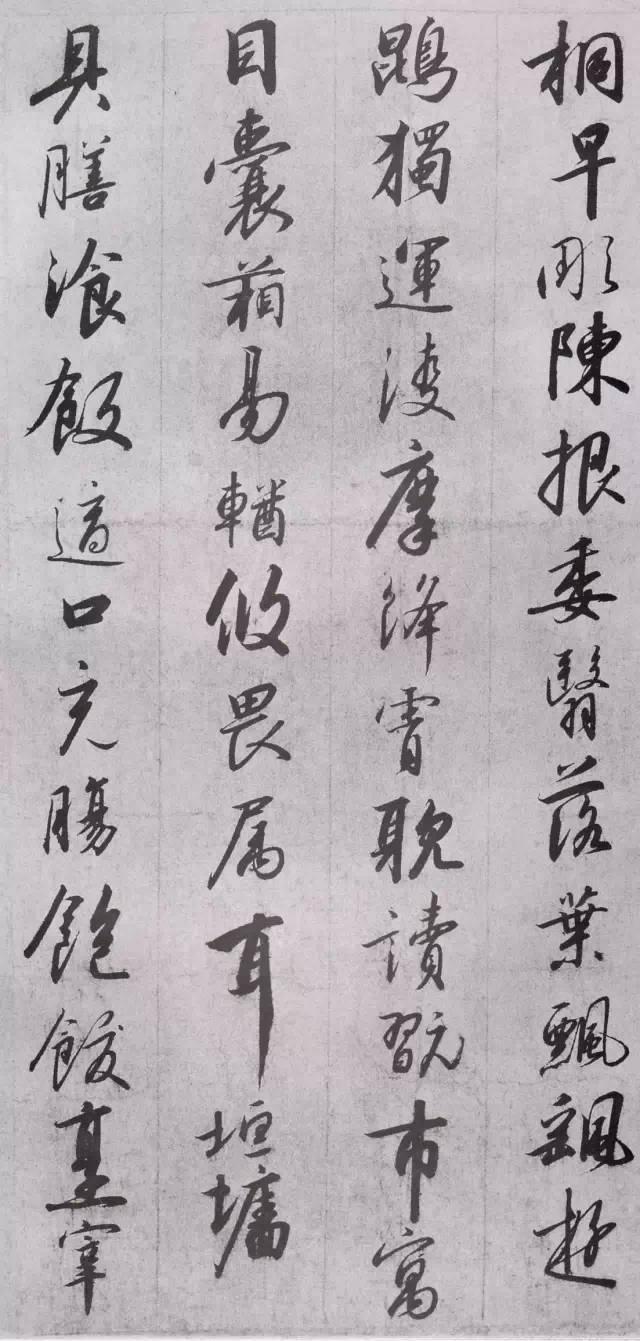 桐早彫陳根委翳落葉飄颻遊
鵾獨運淩摩絳霄耽讀翫市寓
目囊葙易輶攸畏属耳垣墻
具膳飡飯適口充腸飽飫享宰